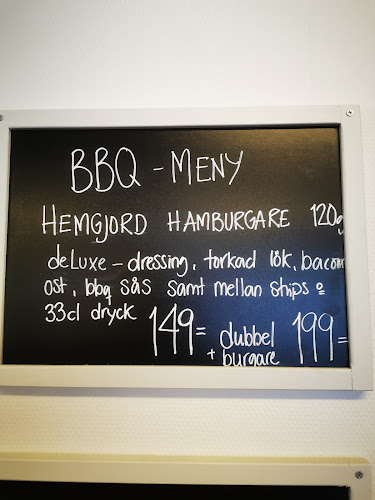 BBQ - MENY
HEMGJORD HAMBURGARE 120g
deLuxe - dressing, torkad lök, bacon
ost, bbq sås samt mellan ships o
33cl dryck 149= + dubbel burgare 199=